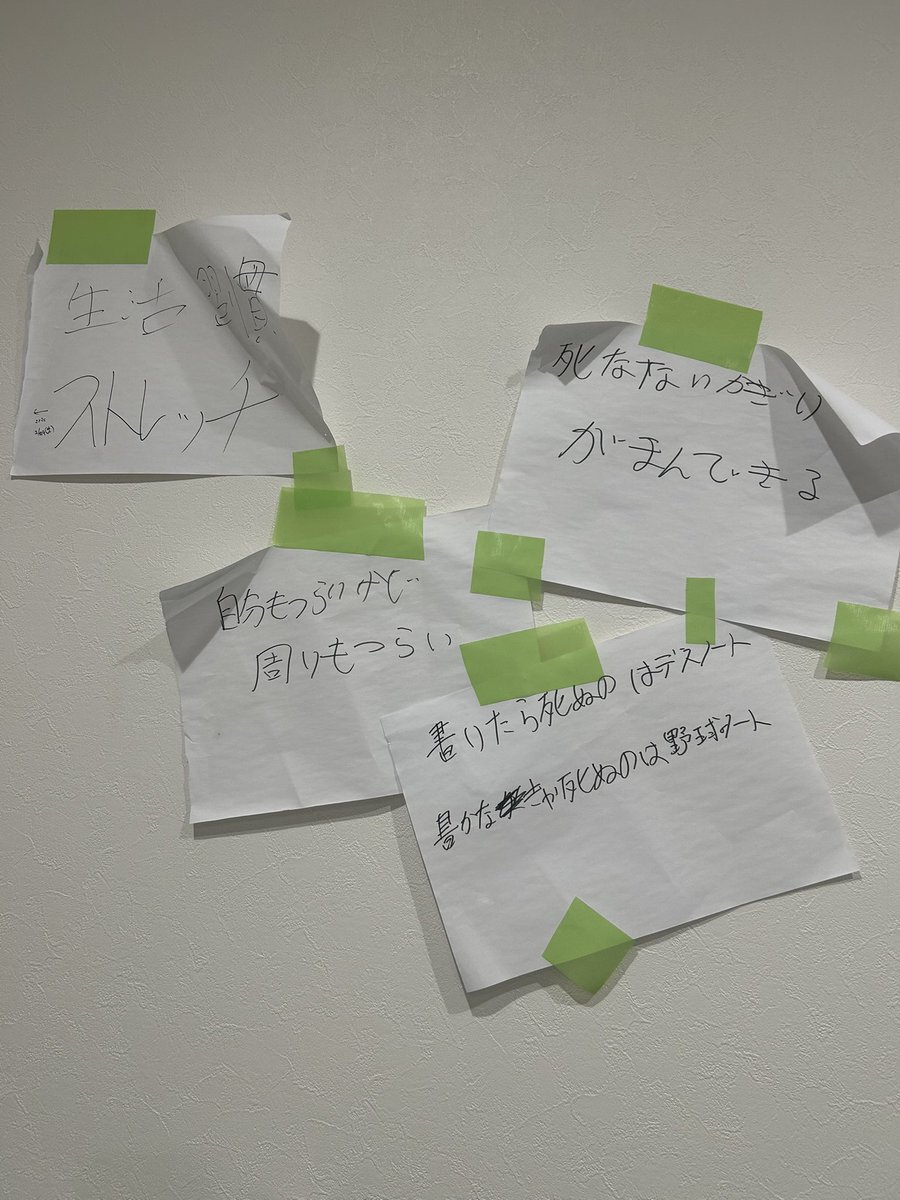 生活習慣
ストレッチ
死なないかぎり
がまんできる
自分もつらいけど
周りもつらい
書いたら死ぬのはデスノート
書かなきゃ死ぬのは野球ノート